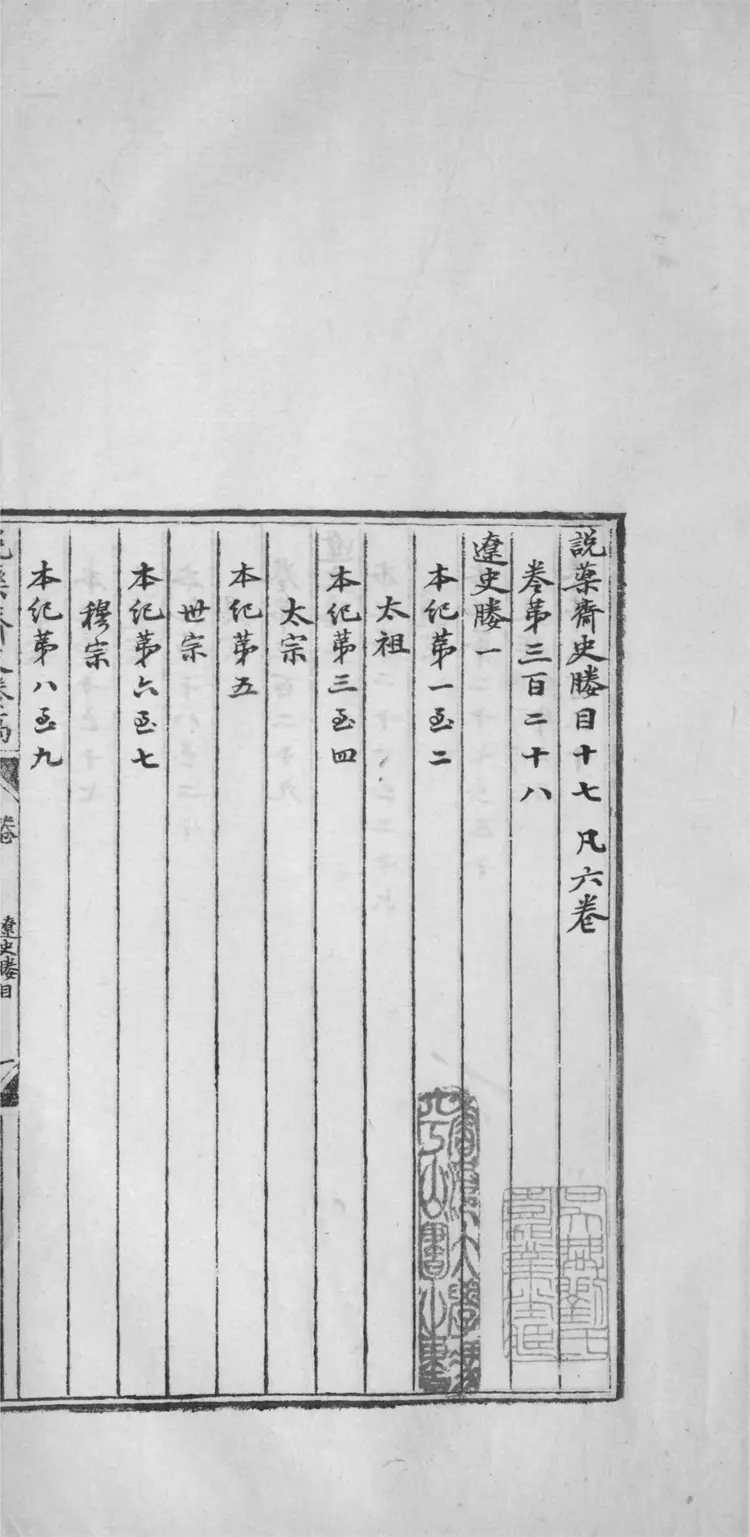 説藥齋史賸目十七 凡六卷
卷第三百二十八
遼史賸一
本紀第一至二
太祖
本紀第三至四
太宗
本紀第五
世宗
本紀第六至七
穆宗
本紀第八至九
卷
遼史賸目